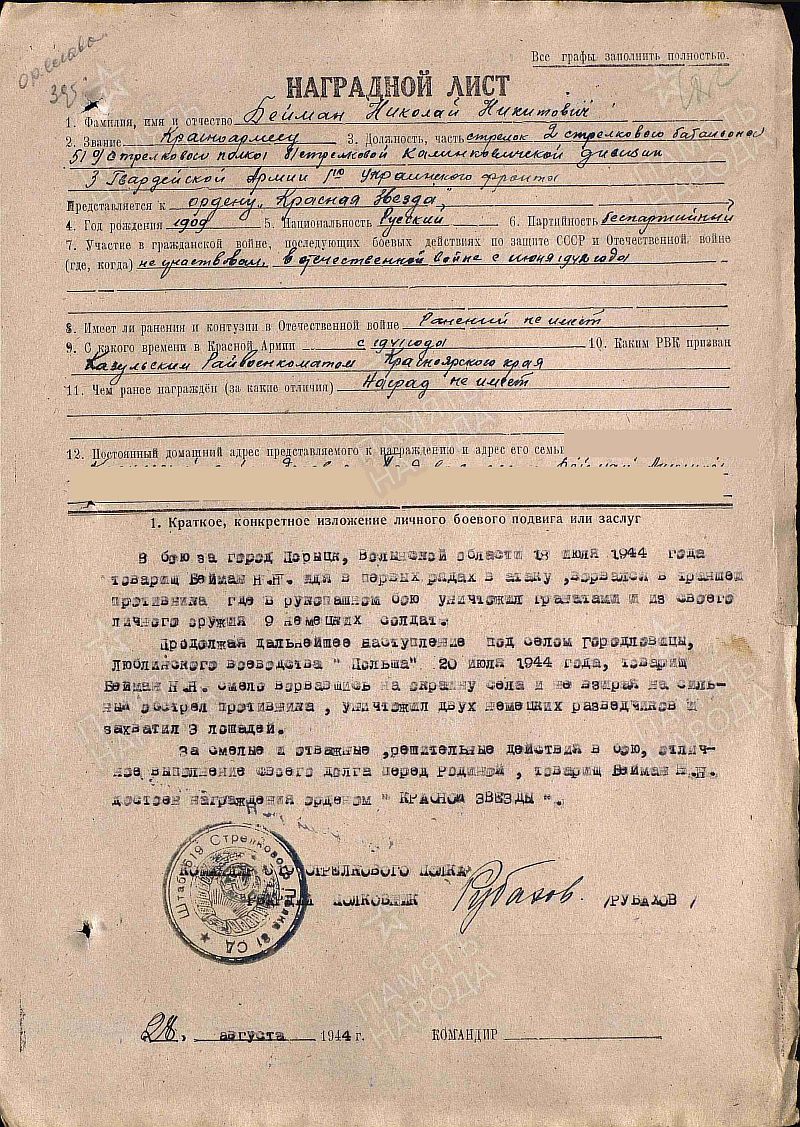 Ор. Слава
395
Все графы заполнить полностью.
НАГРАДНОЙ ЛИСТ
1. Фамилия, имя и отчество Бейман Николай Никитович
2. Звание Красноармеец 3. Должность, часть стрелок 2 стрелкового батальона
519 стрелкового полка 81 стрелковой Калинковичской дивизии
3 Гвардейской Армии 1го Украинского фронта
Представляется к ордену „Красная Звезда"
4. Год рождения 1909 5. Национальность Русский 6. Партийность беспартийный
7. Участие в гражданской войне, последующих боевых действиях по защите СССР и Отечественной войне
(где, когда) не участвовал, в отечественной войне с июня 1942 года
8. Имеет ли ранения и контузии в Отечественной войне Ранений не имеет
9. С какого времени в Красной Армии с 1941 года 10. Каким РВК призван
Казульским Райвоенкоматом Красноярского края
11. Чем ранее награждён (за какие отличия) Наград не имеет
12. Постоянный домашний адрес представляемого к награждению и адрес его семьи
1. Краткое, конкретное изложение личного боевого подвига или заслуг
В бою за город Порыцк, Волынской области 18 июля 1944 года
товарищ Бейман Н.Н. идя в первых рядах в атаку ,ворвался в траншеи
противника где в рукопашном бою уничтожил гранатами и из своего
личного оружия 9 немецких солдат.
Продолжая дальнейшее наступление под селом Городловицы,
Люблинского воеводства " Польша" 20 июля 1944 года, товарищ
Бейман Н.Н. смело ворвавшись на окраину села и не взирая на силь-
ный обстрел противника , уничтожил двух немецких разведчиков и
захватил 3 лошадей.
За смелые и отважные ,решительные действия в бою, отлич-
ное выполнение своего долга перед Родиной , товарищ Бейман Н.Н.
достоен награждения орденом " КРАСНОЙ ЗВЕЗДЫ ".
КОМАНДИР СТРЕЛКОВОГО ПОЛКА
ГВАРДИИ ПОЛКОВНИК Рубахов. /РУБАХОВ/
Штаб 519 Стрелкового Полка 81 СД
28, августа 1944 г. КОМАНДИР
ПАМЯТЬ НАРОДА